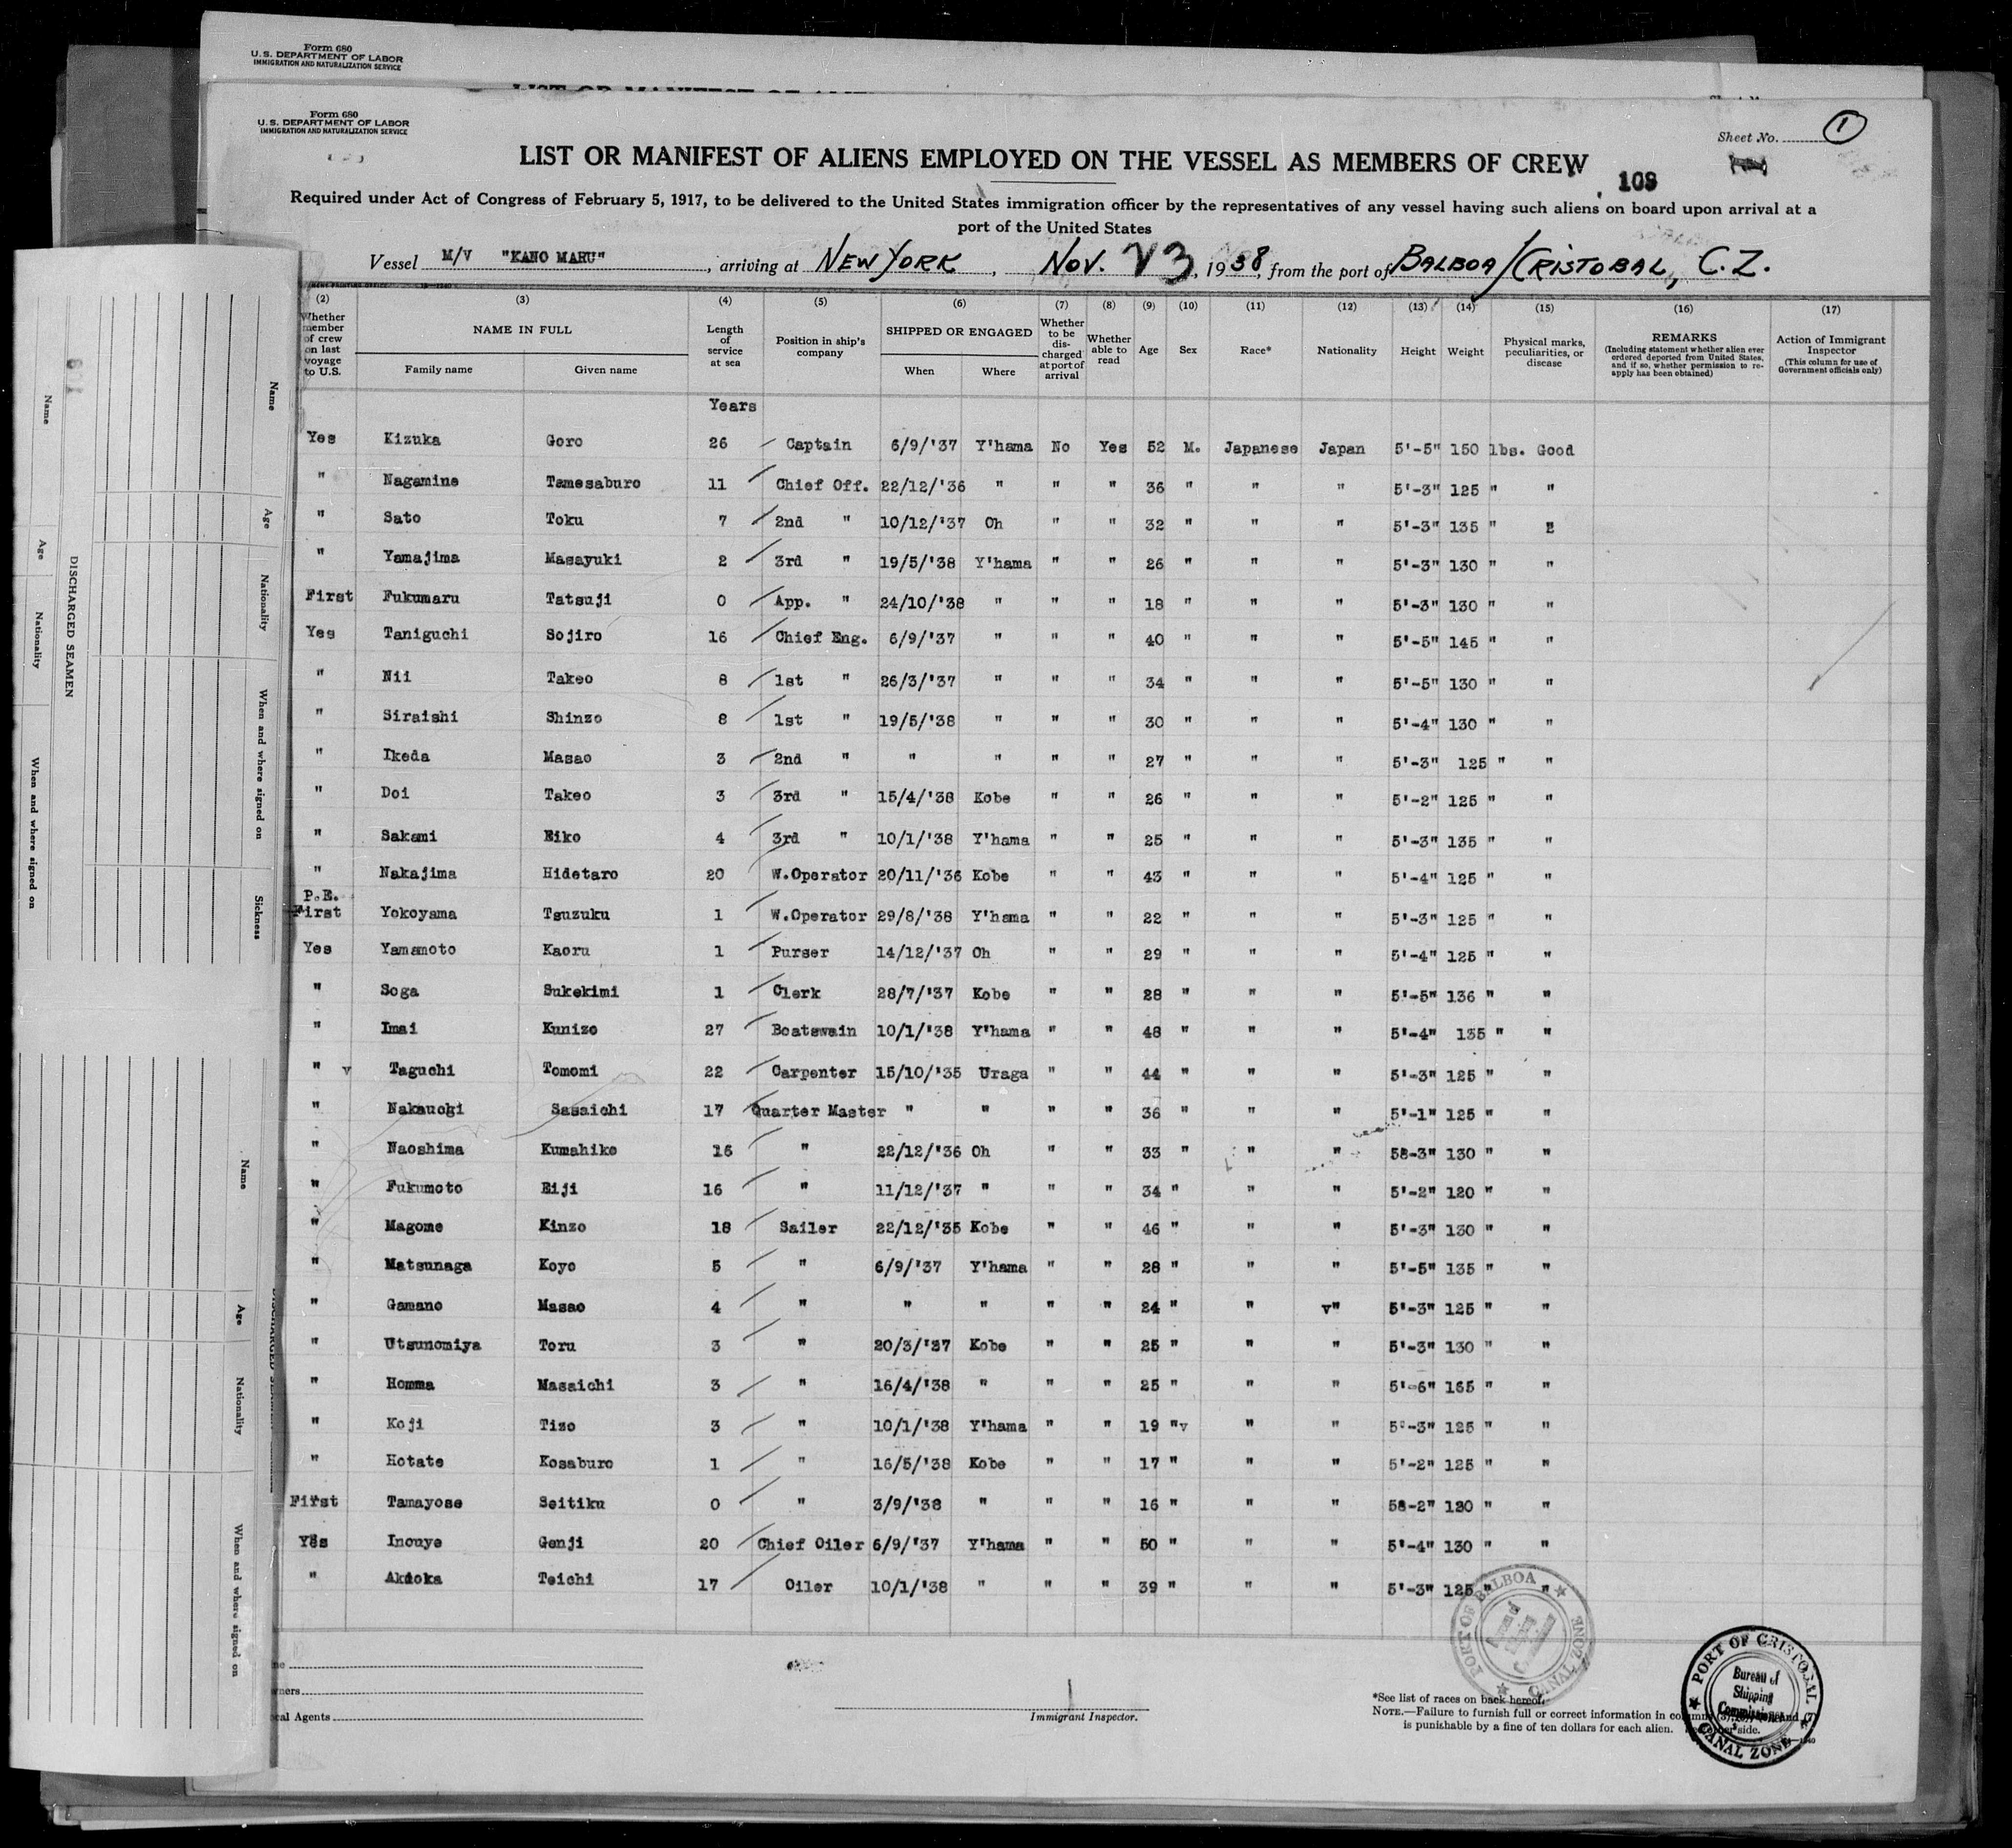 Form 680
U.S. DEPARTMENT OF LABOR
IMMIGRATION AND NATURALIZATION SERVICE
Form 680
U.S. DEPARTMENT OF LABOR
IMMIGRATION AND NATURALIZATION SERVICE
Sheet No. 1
LIST OR MANIFEST OF ALIENS EMPLOYED ON THE VESSEL AS MEMBERS OF CREW
109
Required under Act of Congress of February 5, 1917, to be delivered to the United States immigration officer by the representatives of any vessel having such aliens on board upon arrival at a
port of the United States
Vessel M/V "KANO MARU", arriving at NEW YORK, NOV. 23, 1938, from the port of BALBOA/CRISTOBAL, C.Z.
(2) (3) (4) (5) (6) (7) (8) (9) (10) (11) (12) (13) (14) (15) (16) (17)
Whether member of crew on last voyage to U.S. NAME IN FULL Family name Given name Length of service at sea Position in ship's company SHIPPED OR ENGAGED When Where Whether to be discharged at port of arrival Whether able to read Age Sex Race* Nationality Height Weight Physical marks, peculiarities, or disease REMARKS (Including statement whether alien ever ordered deported from United States, and if so, whether permission to re-apply has been obtained) Action of Immigrant Inspector (This column for use of Government officials only)
Years
Yes Kizuka Goro 26 Captain 6/9/'37 Y'hama No Yes 52 M. Japanese Japan 5'-5" 150 lbs. Good
" Nagamine Tamesaburo 11 Chief Off. 22/12/'36 " " " 36 " " " 5'-3" 125 " "
" Sato Toku 7 2nd " 10/12/'37 Oh " " 32 " " " 5'-3" 135 " "
" Yamajima Masayuki 2 3rd " 19/5/'38 Y'hama " " 26 " " " 5'-3" 130 " "
First Fukumaru Tatsuji 0 App. " 24/10/'38 " " " 18 " " " 5'-3" 130 " "
Yes Taniguchi Sojiro 16 Chief Eng. 6/9/'37 " " " 40 " " " 5'-5" 145 " "
" Nii Takeo 8 1st " 26/3/'37 " " " 34 " " " 5'-5" 130 " "
" Siraishi Shinzo 8 1st " 19/5/'38 " " " 30 " " " 5'-4" 130 " "
" Ikeda Masao 3 2nd " " " " " 27 " " " 5'-3" 125 " "
" Doi Takeo 3 3rd " 15/4/'38 Kobe " " 26 " " " 5'-2" 125 " "
" Sakami Eiko 4 3rd " 10/1/'38 Y'hama " " 25 " " " 5'-3" 135 " "
" Nakajima Hidetaro 20 W.Operator 20/11/'36 Kobe " " 43 " " " 5'-4" 125 " "
P.E.
First Yokoyama Tsuzuku 1 W.Operator 29/8/'38 Y'hama " " 22 " " " 5'-3" 125 " "
Yes Yamamoto Kaoru 1 Purser 14/12/'37 Oh " " 29 " " " 5'-4" 125 " "
" Soga Sukekimi 1 Clerk 28/7/'37 Kobe " " 28 " " " 5'-5" 136 " "
" Imai Kunizo 27 Boatswain 10/1/'38 Y'hama " " 48 " " " 5'-4" 135 " "
" v Taguchi Tomomi 22 Carpenter 15/10/'35 Uraga " " 44 " " " 5'-3" 125 " "
" Nakauchi Sasaichi 17 Quarter Master " " " " 36 " " " 5'-1" 125 " "
" Naoshima Kumahiko 16 " 22/12/'36 Oh " " 33 " " " 58-3" 130 " "
" Fukumoto Eiji 16 " 11/12/'37 " " " 34 " " " 5'-2" 120 " "
" Magome Kinzo 18 Sailer 22/12/'35 Kobe " " 46 " " " 5'-3" 130 " "
" Matsunaga Koyo 5 " 6/9/'37 Y'hama " " 28 " " " 5'-5" 135 " "
" Gamano Masao 4 " " " " " 24 " " v" 5'-3" 125 " "
" Utsunomiya Toru 3 " 20/3/'37 Kobe " " 25 " " " 5'-3" 130 " "
" Homma Masaichi 3 " 16/4/'38 " " " 25 " " " 5'-6" 165 " "
" Koji Tizo 3 " 10/1/'38 Y'hama " " 19 "v " " 5'-3" 125 " "
" Hotate Kosaburo 1 " 16/5/'38 Kobe " " 17 " " " 5'-2" 125 " "
First Tamayose Seitiku 0 " 3/9/'38 " " " 16 " " " 58-2" 120 " "
Yes Inouye Genji 20 Chief Oiler 6/9/'37 Y'hama " " 50 " " " 5'-4" 130 " "
" Akioka Teichi 17 Oiler 10/1/'38 " " " 39 " " " 5'-3" 125 " "
Immigrant Inspector.
*See list of races on back hereof.
NOTE.—Failure to furnish full or correct information in
is punishable by a fine of ten dollars for each alien. side.
PORT OF BALBOA
CANAL ZONE
PORT OF CRISTOBAL
Bureau of
Shipping
Commissioner
CANAL ZONE
Name
Age
Nationality
When and where signed on
DISCHARGED SEAMEN
Name
Age
Nationality
When and where signed on
Sickness
Name
Age
Nationality
When and where signed on